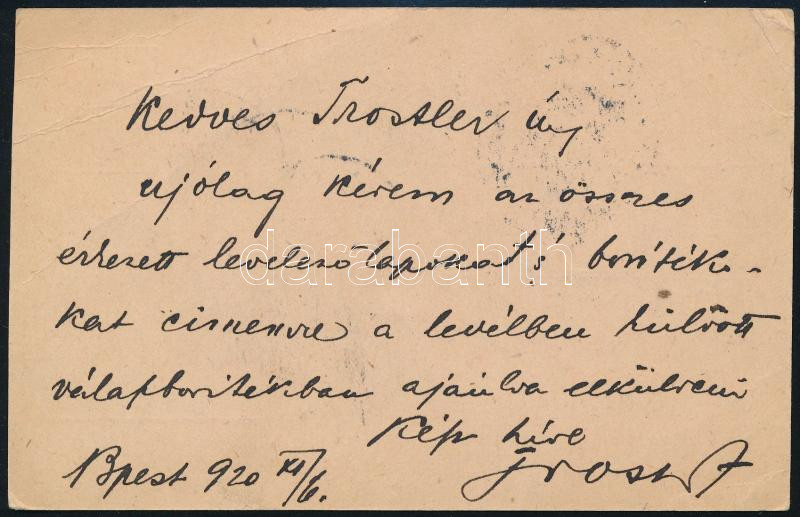 Kedves Trostler úr
ujólag kérem az összes
érkezett levelezőlapokat és boríték-
kat címemre a levélben küldött
válaszboritékban ajánlva elküldeni
híve
Bpest 920 XII/6. Trost
darabanth